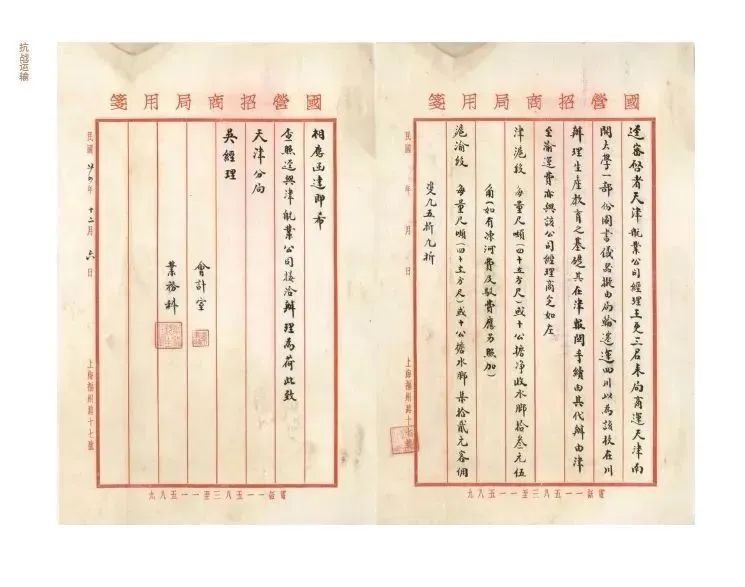 抗战运输
國營招商局用箋
逕啓者天津航業公司經理王更三君來局商運天津南
開大學一部份圖書儀器擬由局輪運四川以為該校在川
辦理生產教育之基礎其在津報関手續由其代辦由津
至渝運費亦與該公司經理商定如左
津滬段 每量尺噸(四十立方尺)或十公擔净收水腳拾叁元伍
角(如有凍河費及駁費應另照加)
滬渝段 每量尺噸(四十立方尺)或十公擔水腳柒拾貳元客佣
雙九五折九折
民國 年 月 日
上海福州路十
電話一一五八三至一一五八九
國營招商局用箋
相應函達即希
查照逕與津航業公司接洽辦理為荷此致
天津分局
吳經理
會計室
業務科
民國廿四年十二月六日
上海福州路十七號
電話一一五八三至一一五八九